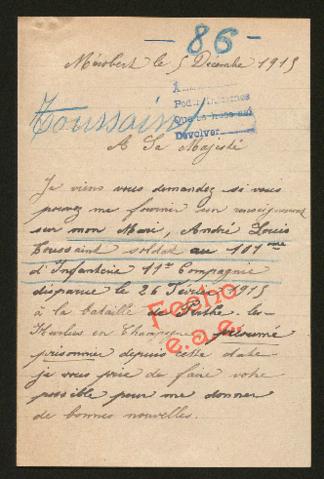 - 86 -
Mérobert le 5 Decembre 1915
Toussaint
Devolver
A Sa Majesté
Je viens vous demandez si vous
pouvez me fournir un renseignement
sur mon Mari, André Louis
Toussaint soldat au 101ème
d'Infanterie 11e Compagnie
disparue le 26 Février 1915
à la bataille de Perthe-les-
Hurlus en Champagne présumé
prisonnier depuis cette date
je vous prie de faire votre
possible pour me donner
de bonnes nouvelles.
Fecho
e.a.e.